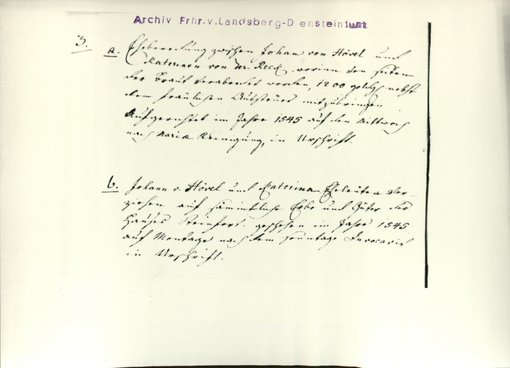 Archiv Frhr.v.Landsberg-Densteinfurt
3. a. Eheberedung zwischen Johan von Hövel und
Katerinen von der Reck, worinn von seiten
der Braut verabredet worden, 1200 goldg. nebst
dem fräulichen mitzubringen
Aufgerichtet im Jahre 1545 auf den Mittwoch
nach Mariæ Reinigung, in Urschrift.
b. Johann v. Hövel und Caterina Eheleute Ver-
ziehen auf sämmtliche Erbe und Güter des
Hauses Steinfort. geschehen im Jahre 1545
auf Montage nach dem Sonntage Invocavit
in Urschrift.